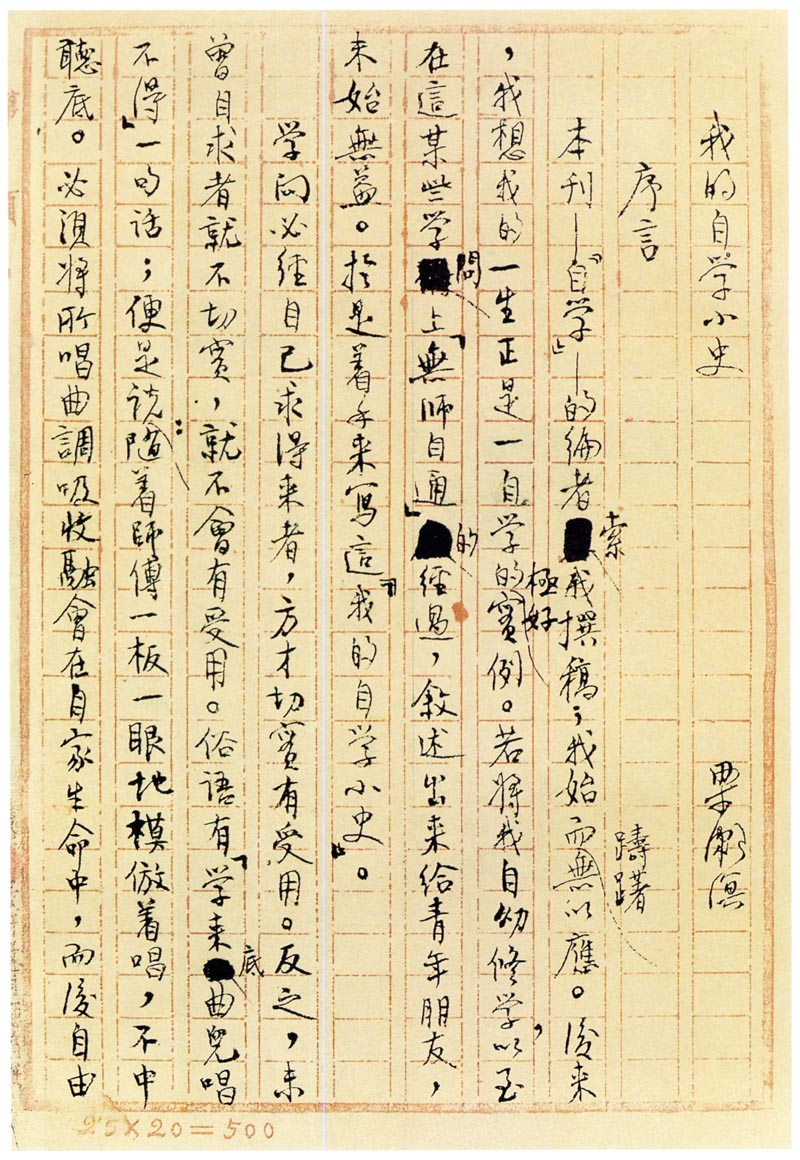 我的自学小史 梁漱溟
序言
本刊—「自学」—的編者索我撰稿；我始而躊躇無以應。後来
，我想我的一生正是一自学的極好實例。若將我自幼修学，以至
在這某些学問上「無師自通」的經過，敘述出来給青年朋友，
未始無益。於是着手来寫這「我的自学小史」。
学问必經自己求得来者，方才切實有受用。反之，未
曾自求者就不切實，就不會有受用。俗語有「学来底曲兒唱
不得」一句話；便是说：随着師傅一板一眼地模倣着唱，不中
聽底。必須將所唱曲調吸收融會在自家生命中，而後自由
25×20=500